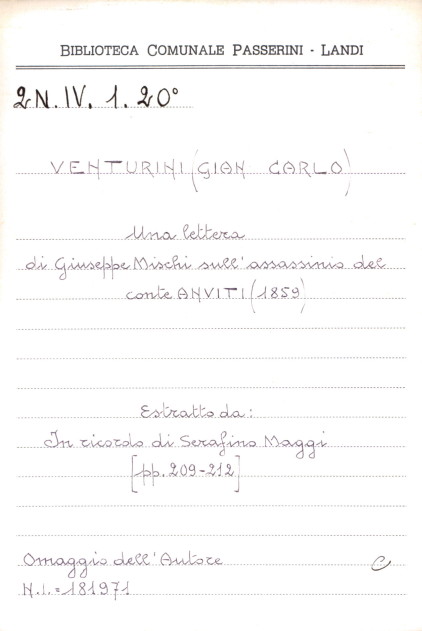 BIBLIOTECA COMUNALE PASSERINI - LANDI
2N.IV. 1. 20°
VENTURINI (GIAN CARLO)
Una lettera
di Giuseppe Mischi sull'assassinio del
conte ANVITI (1859)
Estratto da:
In ricordo di Serafino Maggi
[pp. 209-212]
Omaggio dell'Autore C
N.I. = 181971